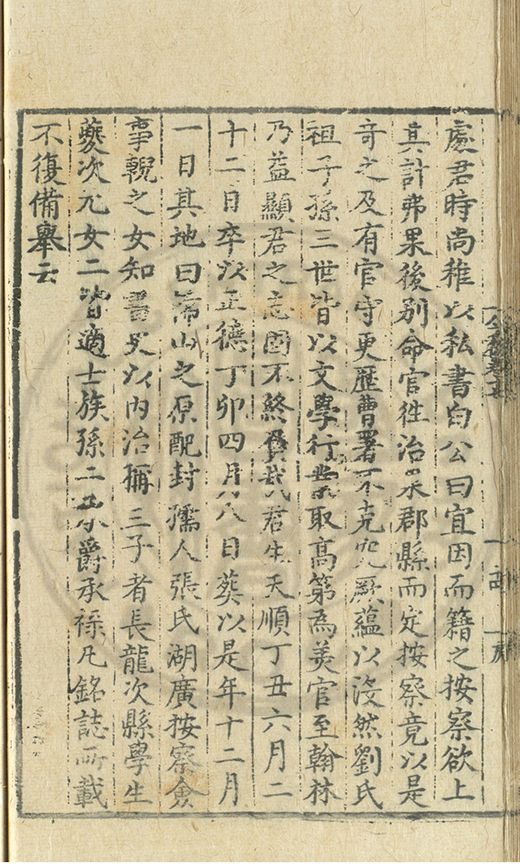 處君時尚稚以私書白公曰宜因而籍之按察欲上
其計弗果後别命官徃治叅郡縣而定按察竟以是
奇之及有官守更歷曹署不克究厥蘊以沒然劉氏
祖子孫三世皆以文學行業取高第為美官至翰林
乃益顯君之志固不終賫哉君生天順丁丑六月二
十二日卒以正德丁卯四月八日葬以是年十二月
一日其地曰 山之原配封孺人張氏湖廣按察僉
事輗之女知書史以内治稱三子者長龍次縣學生
夔次元女二皆適士族孫二 爵承祿凡銘誌所載
不復備舉云